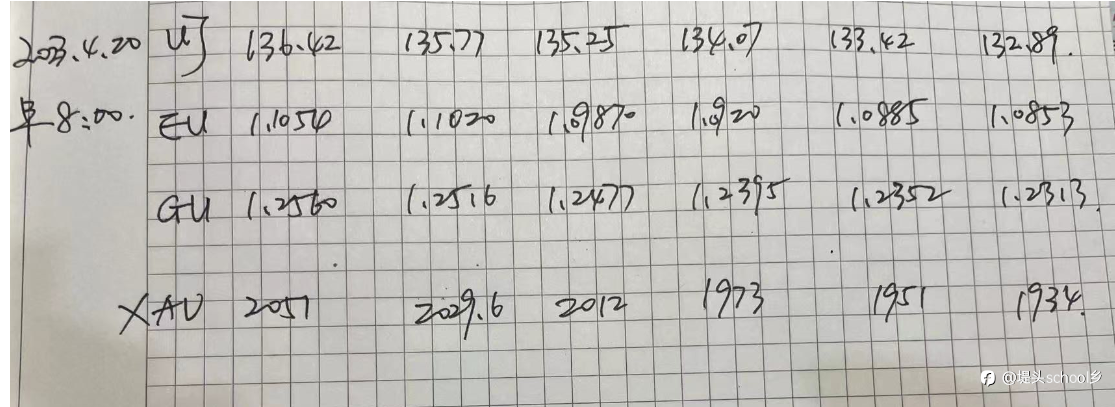 2023.4.20 UJ 136.42 135.77 135.25 134.07 133.42 132.89.
早8:00. EU 1.1054 1.1020 1.09870 1.0920 1.0885 1.0853
GU 1.2560 1.2516 1.2477 1.2395 1.2352 1.2313.
XAU 2051 2029.6 2012 1973 1951 1934.
@堤头school乡